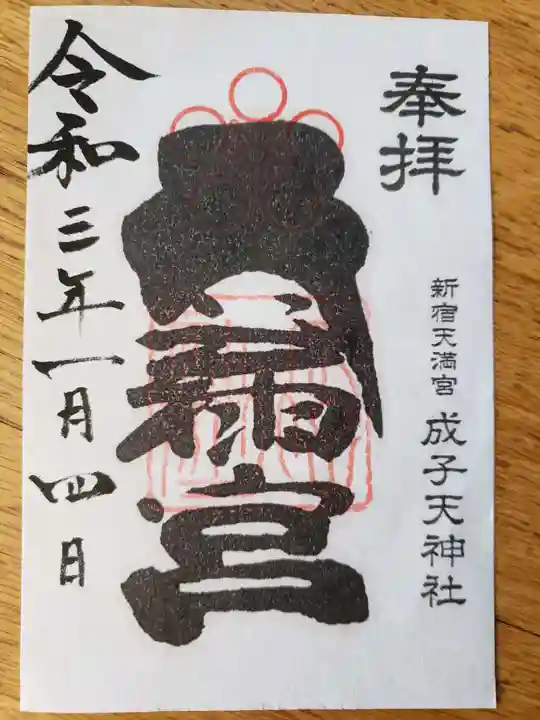 奉拝
新宿天満宮 成子天神社
宮
令和三年一月四日